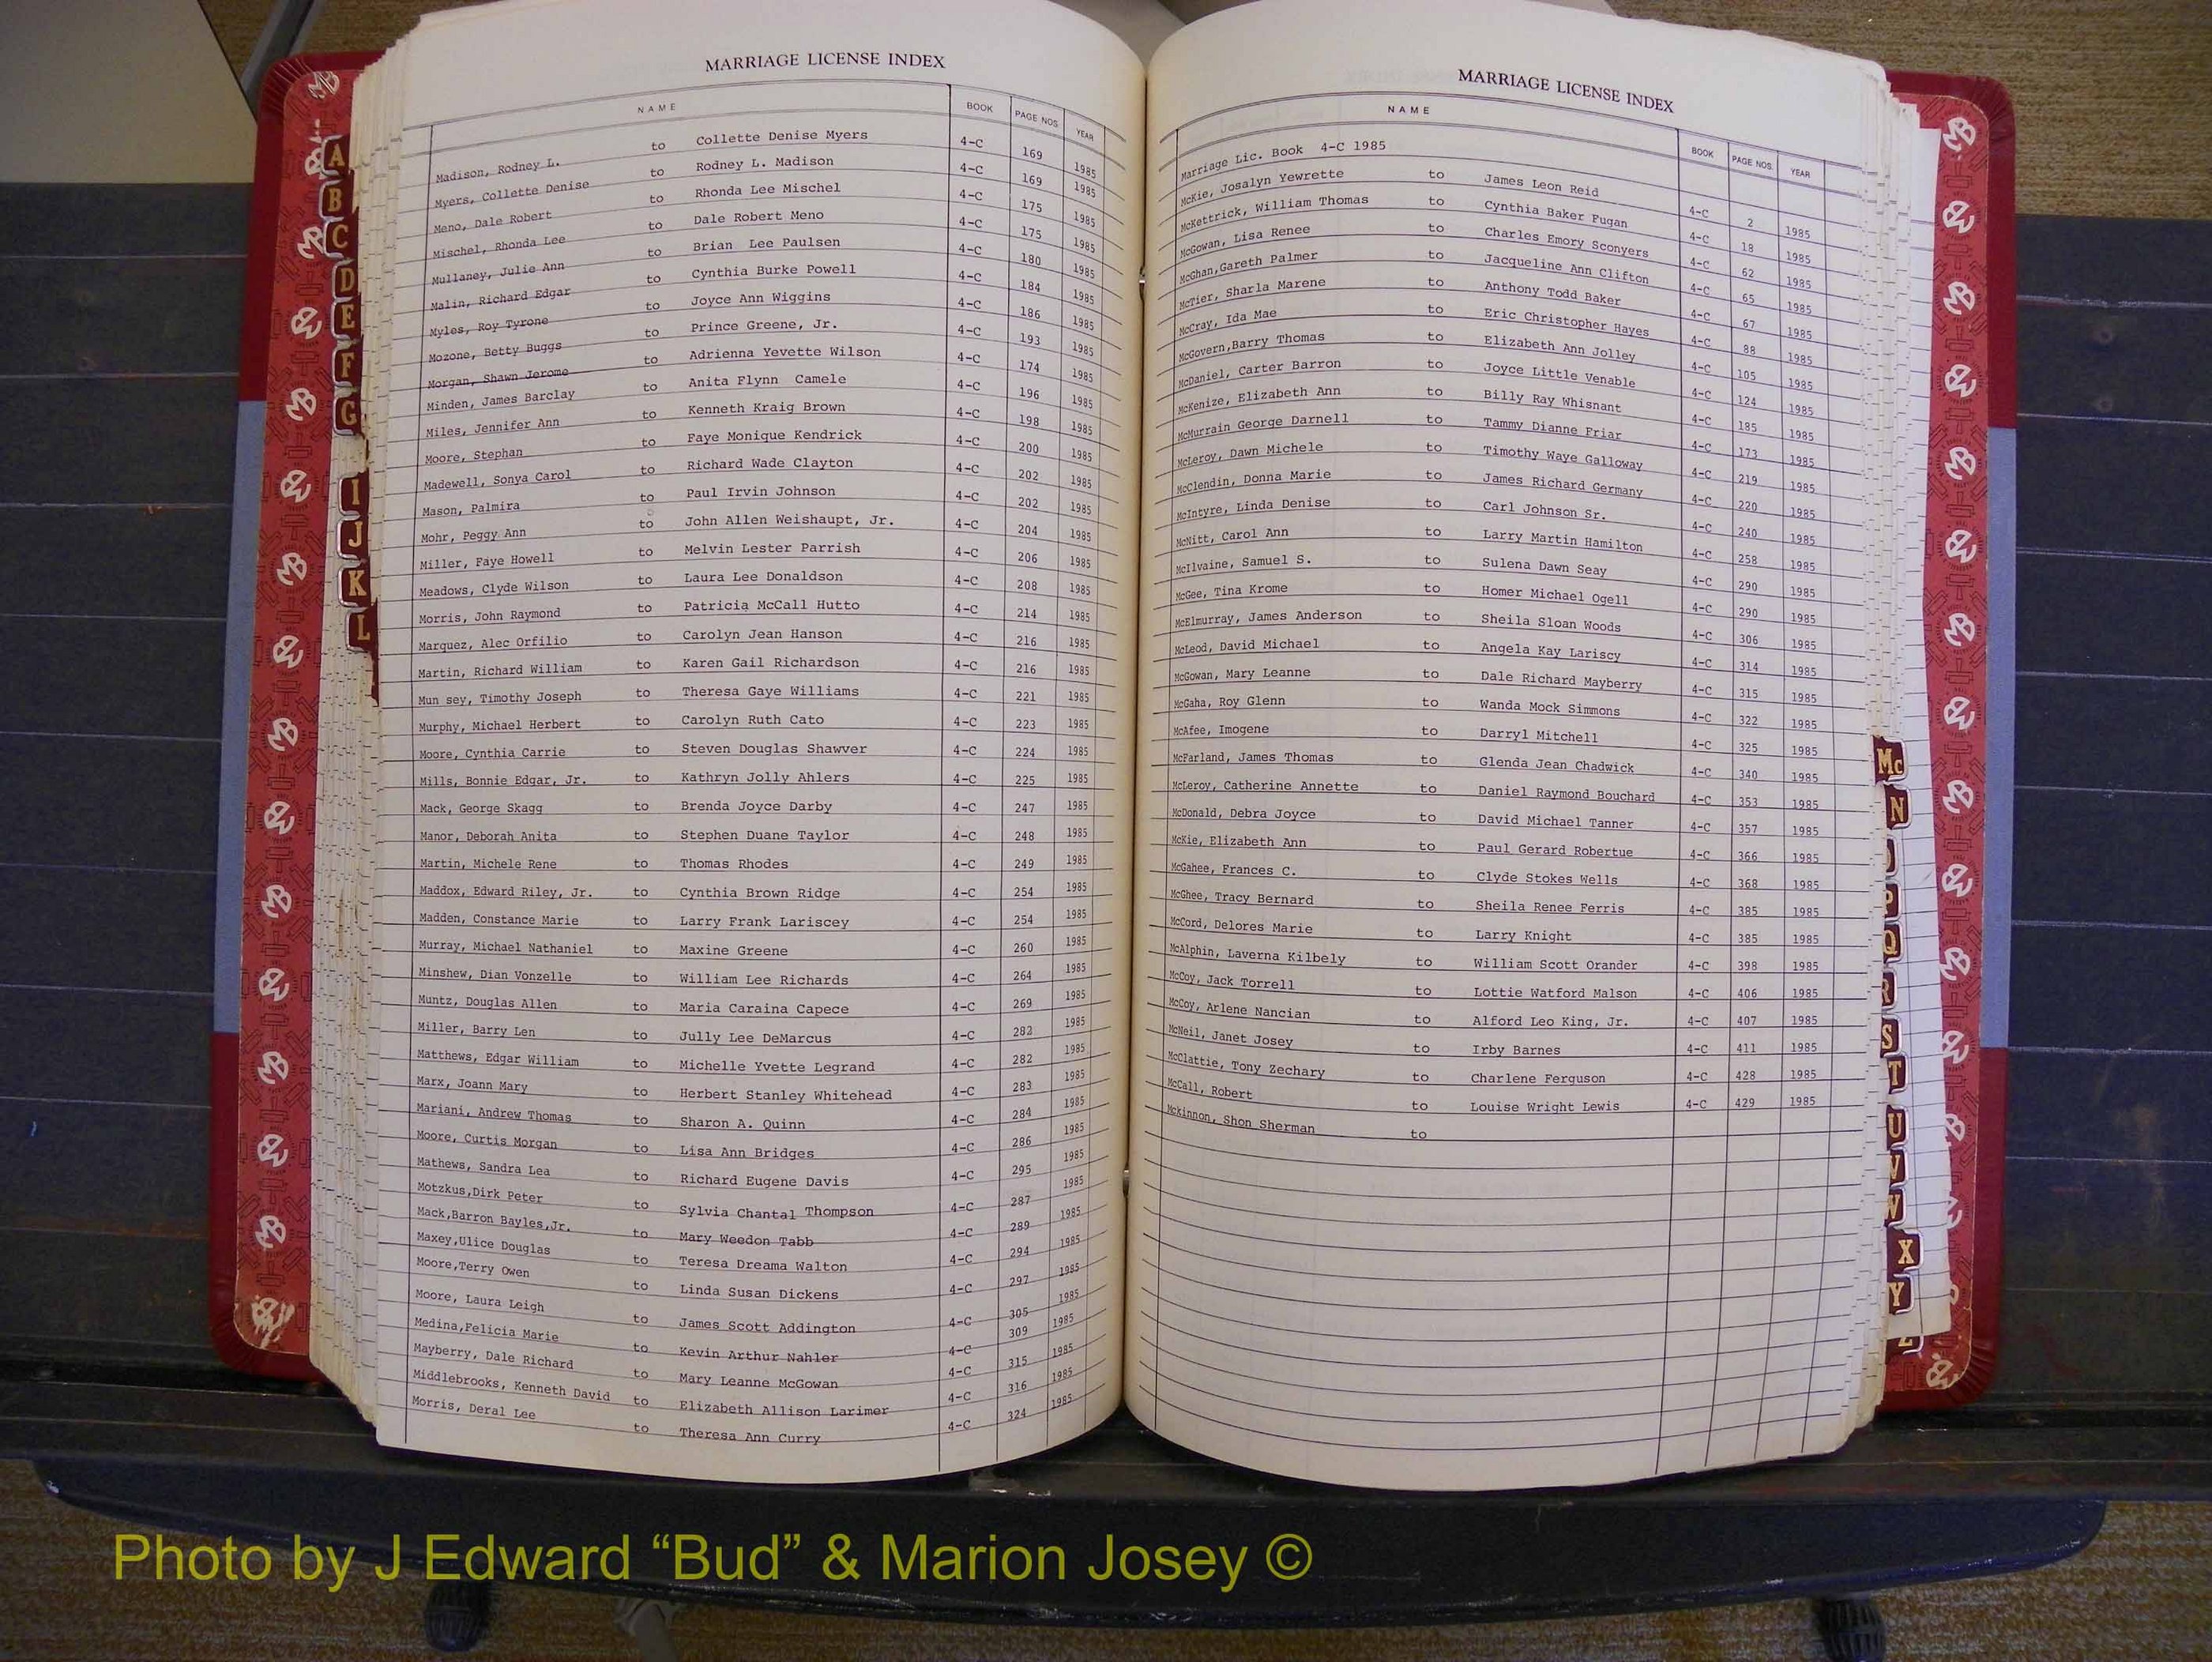 MARRIAGE LICENSE INDEX
NAME BOOK PAGE NOS. YEAR
Madison, Rodney L. to Collette Denise Myers 4-C 169 1985
Myers, Collette Denise to Rodney L. Madison 4-C 169 1985
Meno, Dale Robert to Rhonda Lee Mischel 4-C 175 1985
Mischel, Rhonda Lee to Dale Robert Meno 4-C 175 1985
Mullaney, Julie Ann to Brian Lee Paulsen 4-C 180 1985
Malin, Richard Edgar to Cynthia Burke Powell 4-C 184 1985
Myles, Roy Tyrone to Joyce Ann Wiggins 4-C 186 1985
Mozone, Betty Buggs to Prince Greene, Jr. 4-C 193 1985
Morgan, Shawn Jerome to Adrienna Yevette Wilson 4-C 174 1985
Minden, James Barclay to Anita Flynn Camele 4-C 196 1985
Miles, Jennifer Ann to Kenneth Kraig Brown 4-C 198 1985
Moore, Stephan to Faye Monique Kendrick 4-C 200 1985
Madewell, Sonya Carol to Richard Wade Clayton 4-C 202 1985
Mason, Palmira to Paul Irvin Johnson 4-C 202 1985
Mohr, Peggy Ann to John Allen Weishaupt, Jr. 4-C 204 1985
Miller, Faye Howell to Melvin Lester Parrish 4-C 206 1985
Meadows, Clyde Wilson to Laura Lee Donaldson 4-C 208 1985
Morris, John Raymond to Patricia McCall Hutto 4-C 214 1985
Marquez, Alec Orfilio to Carolyn Jean Hanson 4-C 216 1985
Martin, Richard William to Karen Gail Richardson 4-C 216 1985
Mun sey, Timothy Joseph to Theresa Gaye Williams 4-C 221 1985
Murphy, Michael Herbert to Carolyn Ruth Cato 4-C 223 1985
Moore, Cynthia Carrie to Steven Douglas Shawver 4-C 224 1985
Mills, Bonnie Edgar, Jr. to Kathryn Jolly Ahlers 4-C 225 1985
Mack, George Skagg to Brenda Joyce Darby 4-C 247 1985
Manor, Deborah Anita to Stephen Duane Taylor 4-C 248 1985
Martin, Michele Rene to Thomas Rhodes 4-C 249 1985
Maddox, Edward Riley, Jr. to Cynthia Brown Ridge 4-C 254 1985
Madden, Constance Marie to Larry Frank Lariscey 4-C 254 1985
Murray, Michael Nathaniel to Maxine Greene 4-C 260 1985
Minshew, Dian Vonzelle to William Lee Richards 4-C 264 1985
Muntz, Douglas Allen to Maria Caraina Capece 4-C 269 1985
Miller, Barry Len to Jully Lee DeMarcus 4-C 282 1985
Matthews, Edgar William to Michelle Yvette Legrand 4-C 282 1985
Marx, Joann Mary to Herbert Stanley Whitehead 4-C 283 1985
Mariani, Andrew Thomas to Sharon A. Quinn 4-C 284 1985
Moore, Curtis Morgan to Lisa Ann Bridges 4-C 286 1985
Mathews, Sandra Lea to Richard Eugene Davis 4-C 295 1985
Motzkus,Dirk Peter to Sylvia Chantal Thompson 4-C 287 1985
Mack,Barron Bayles,Jr. to Mary Weedon Tabb 4-C 289 1985
Maxey,Ulice Douglas to Teresa Dreama Walton 4-C 294 1985
Moore,Terry Owen to Linda Susan Dickens 4-C 297 1985
Moore, Laura Leigh to James Scott Addington 4-C 305 1985
Medina,Felicia Marie to Kevin Arthur Nahler 4-C 309 1985
Mayberry, Dale Richard to Mary Leanne McGowan 4-C 315 1985
Middlebrooks, Kenneth David to Elizabeth Allison Larimer 4-C 316 1985
Morris, Deral Lee to Theresa Ann Curry 4-C 324 1985
A
B
C
D
E
F
G
I
J
K
L
MARRIAGE LICENSE INDEX
NAME BOOK PAGE NOS. YEAR
Marriage Lic. Book 4-C 1985
McKie, Josalyn Yewrette to James Leon Reid 4-C 2 1985
McKettrick, William Thomas to Cynthia Baker Fugan 4-C 18 1985
McGowan, Lisa Renee to Charles Emory Sconyers 4-C 62 1985
McGhan,Gareth Palmer to Jacqueline Ann Clifton 4-C 65 1985
McTier, Sharla Marene to Anthony Todd Baker 4-C 67 1985
McCray, Ida Mae to Eric Christopher Hayes 4-C 88 1985
McGovern,Barry Thomas to Elizabeth Ann Jolley 4-C 105 1985
McDaniel, Carter Barron to Joyce Little Venable 4-C 124 1985
McKenize, Elizabeth Ann to Billy Ray Whisnant 4-C 185 1985
McMurrain George Darnell to Tammy Dianne Friar 4-C 173 1985
McLeroy, Dawn Michele to Timothy Waye Galloway 4-C 219 1985
McClendin, Donna Marie to James Richard Germany 4-C 220 1985
McIntyre, Linda Denise to Carl Johnson Sr. 4-C 240 1985
McNitt, Carol Ann to Larry Martin Hamilton 4-C 258 1985
McIlvaine, Samuel S. to Sulena Dawn Seay 4-C 290 1985
McGee, Tina Krome to Homer Michael Ogell 4-C 290 1985
McElmurray, James Anderson to Sheila Sloan Woods 4-C 306 1985
McLeod, David Michael to Angela Kay Lariscy 4-C 314 1985
McGowan, Mary Leanne to Dale Richard Mayberry 4-C 315 1985
McGaha, Roy Glenn to Wanda Mock Simmons 4-C 322 1985
McAfee, Imogene to Darryl Mitchell 4-C 325 1985
McFarland, James Thomas to Glenda Jean Chadwick 4-C 340 1985
McLeroy, Catherine Annette to Daniel Raymond Bouchard 4-C 353 1985
McDonald, Debra Joyce to David Michael Tanner 4-C 357 1985
McKie, Elizabeth Ann to Paul Gerard Robertue 4-C 366 1985
McGahee, Frances C. to Clyde Stokes Wells 4-C 368 1985
McGhee, Tracy Bernard to Sheila Renee Ferris 4-C 385 1985
McCord, Delores Marie to Larry Knight 4-C 385 1985
McAlphin, Laverna Kilbely to William Scott Orander 4-C 398 1985
McCoy, Jack Torrell to Lottie Watford Malson 4-C 406 1985
McCoy, Arlene Nancian to Alford Leo King, Jr. 4-C 407 1985
McNeil, Janet Josey to Irby Barnes 4-C 411 1985
McClattie, Tony Zechary to Charlene Ferguson 4-C 428 1985
McCall, Robert to Louise Wright Lewis 4-C 429 1985
Mckinnon, Shon Sherman to
Mc
N
P
Q
R
S
T
U
V
W
X
Y
Z
Photo by J Edward “Bud” & Marion Josey ©